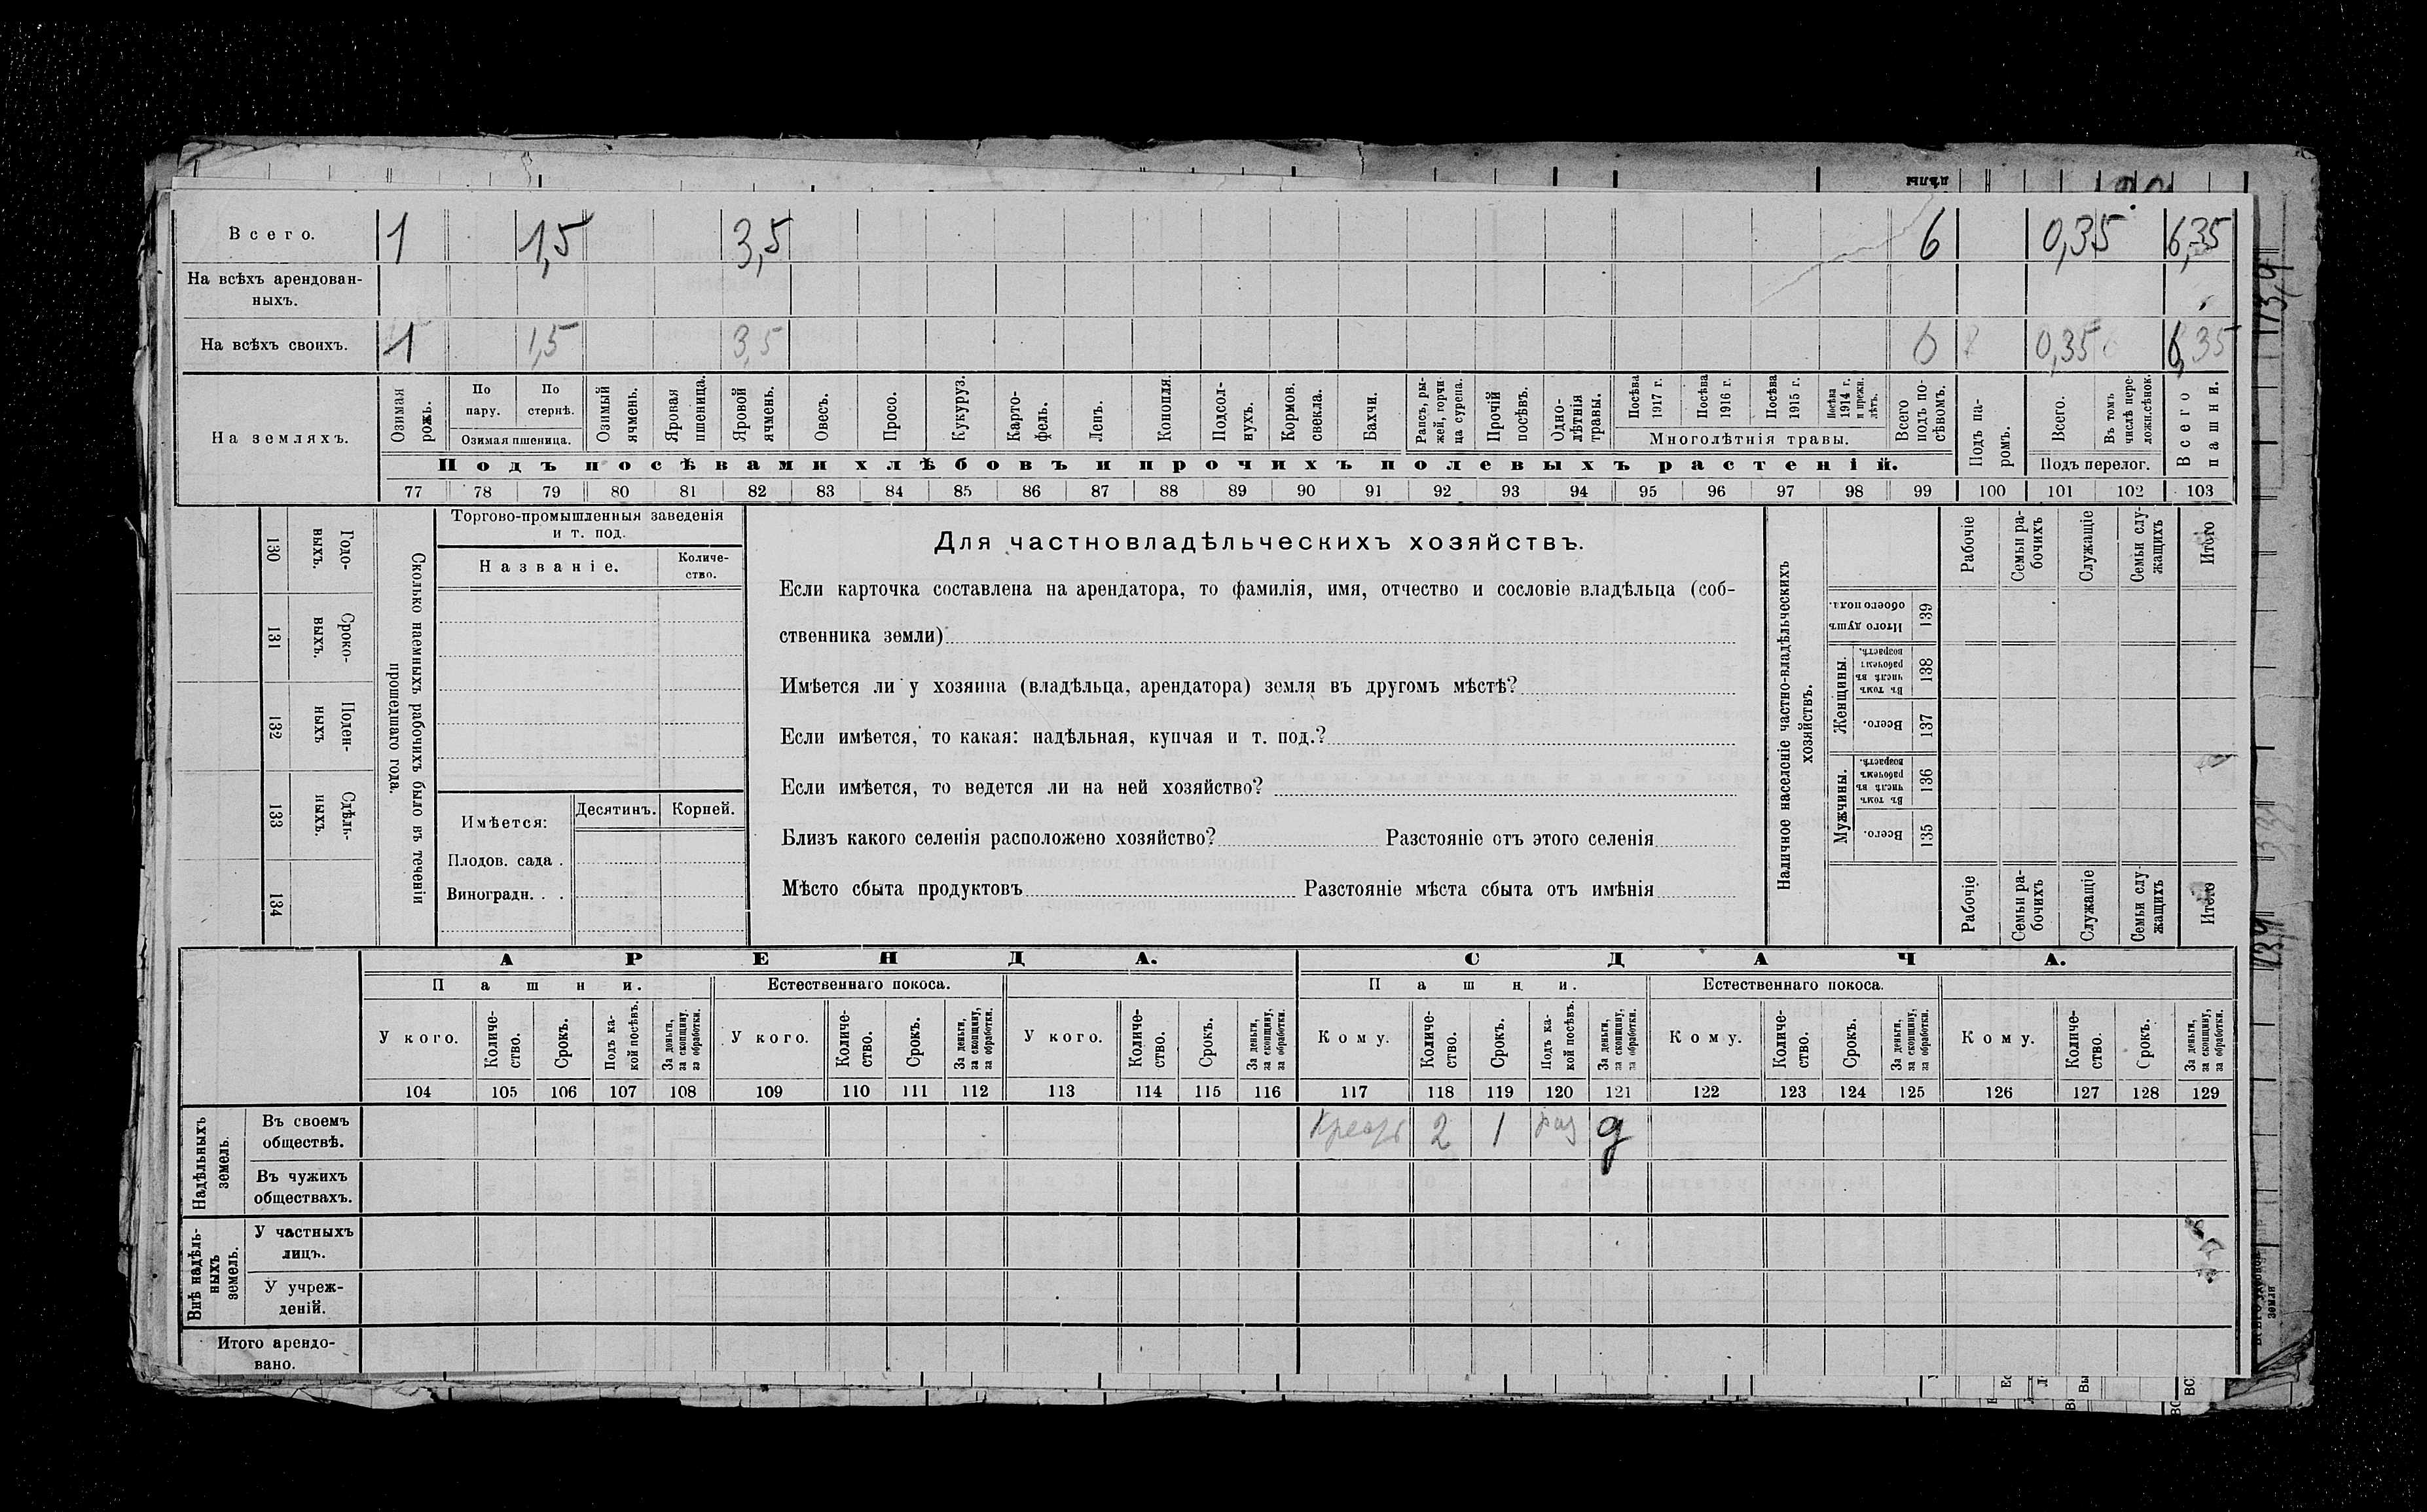 В с е г о. 1 1,5 3,5 6 0,35 6,35
На всѣхъ арендован-
ныхъ.
На всѣхъ своихъ. 1 1,5 3,5 6 0,35 6,35
На земляхъ.
Озимая рожь.
По пару.
По стернѣ.
Озимая пшеница.
Озимый ячмень.
Яровая пшеница.
Яровой ячмень.
Овесъ.
Просо.
Кукуруз.
Карто-
фель.
Ленъ.
Конопля.
Подсол-
нухъ.
Кормов.
свекла.
Бахчи.
Рапсъ, ры-
жей, горчи-
ца сурепа.
Прочій
посѣвъ.
Одно-
лѣтнія
травы.
Посѣва
1917 г.
Посѣва
1916 г.
Посѣва
1915 г.
Посѣва
1914 г.
и прежн.
лѣтъ.
Многолѣтнія травы.
Всего
подъ по-
сѣвомъ.
Подъ па-
ромъ.
Всего.
Въ томъ
числѣ пере-
ложн.сѣнок.
Подъ перелог.
Всего
пашни.
Подъ посѣвами хлѣбовъ и прочихъ полевыхъ растеній.
77 78 79 80 81 82 83 84 85 86 87 88 89 90 91 92 93 94 95 96 97 98 99 100 101 102 103
130 Годо-
ныхъ.
131 Сроко-
выхъ.
132 Поден-
ныхъ
133 Сдѣль-
ныхъ.
134
Сколько наемныхъ рабочихъ было въ теченіи
прошедшаго года.
Торгово-промышленныя заведенія
и т. под.
Названіе.
Количе-
ство.
Имѣется:
Десятинъ. Корней.
Плодов. сада .
Виноградн. . .
Для частновладѣльческихъ хозяйствъ.
Если карточка составлена на арендатора, то фамилія, имя, отчество и сословіе владѣльца (соб-
ственника земли)
Имѣется ли у хозяина (владѣльца, арендатора) земля въ другомъ мѣстѣ?
Если имѣется, то какая: надѣльная, купчая и т. под.?
Если имѣется, то ведется ли на ней хозяйство?
Близъ какого селенія расположено хозяйство? Разстояніе отъ этого селенія
Мѣсто сбыта продуктовъ Разстояніе мѣста сбыта отъ имѣнія
Наличное населеніе частно-владѣльческихъ
хозяйствъ.
Рабочіе
Семьи ра-
бочихъ
Служащіе
Семьи слу-
жащихъ
Итого
Итого душъ
обоего пола.
139
Женщины.
Въ томъ
числѣ въ
рабочемъ
возрастѣ.
138
Всего.
137
Мужчины.
Въ томъ
числѣ въ
рабочемъ
возрастѣ.
136
Всего.
135
Рабочіе
Семьи ра-
бочихъ
Служащіе
Семьи слу-
жащихъ
Итого
АРЕНДА. СДАЧА.
Пашни. Естественнаго покоса. Пашни. Естественнаго покоса.
У кого.
Количе-
ство.
Срокъ.
Подъ ка-
кой посѣвъ.
За деньги,
за скопщину,
за обработки.
У кого.
Количе-
ство.
Срокъ.
За деньги,
за скопщину,
за обработки.
У кого.
Количе-
ство.
Срокъ.
За деньги,
за скопщину,
за обработки.
Кому.
Количе-
ство.
Срокъ.
Подъ ка-
кой посѣвъ.
За деньги,
за скопщину,
за обработки.
Кому.
Количе-
ство.
Срокъ.
За деньги,
за скопщину,
за обработки.
Кому.
Количе-
ство.
Срокъ.
За деньги,
за скопщину,
за обработки.
104 105 106 107 108 109 110 111 112 113 114 115 116 117 118 119 120 121 122 123 124 125 126 127 128 129
Надѣльныхъ
земель.
Въ своемъ
обществѣ.
2 1 д
Въ чужихъ
обществахъ.
Внѣ надѣль-
ныхъ
земель.
У частныхъ
лицъ.
У учреж-
деній.
Итого арендо-
вано.